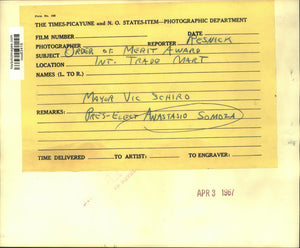 Form No. 148
THE TIMES-PICAYUNE and N. O. STATES-ITEM—PHOTOGRAPHIC DEPARTMENT
FILM NUMBER DATE
PHOTOGRAPHER REPORTER RESNICK
SUBJECT ORDER OF MERIT AWARD
LOCATION INT. TRADE MART
NAMES (L. TO R.)
MAYOR VIC SCHIRO
REMARKS: PRES-ELECT ANASTASIO SOMOZA
TIME DELIVERED TO ARTIST: TO ENGRAVER:
APR 3 1967